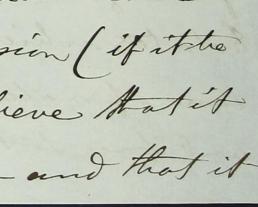 sion (if it be
lieve that it
- and that it